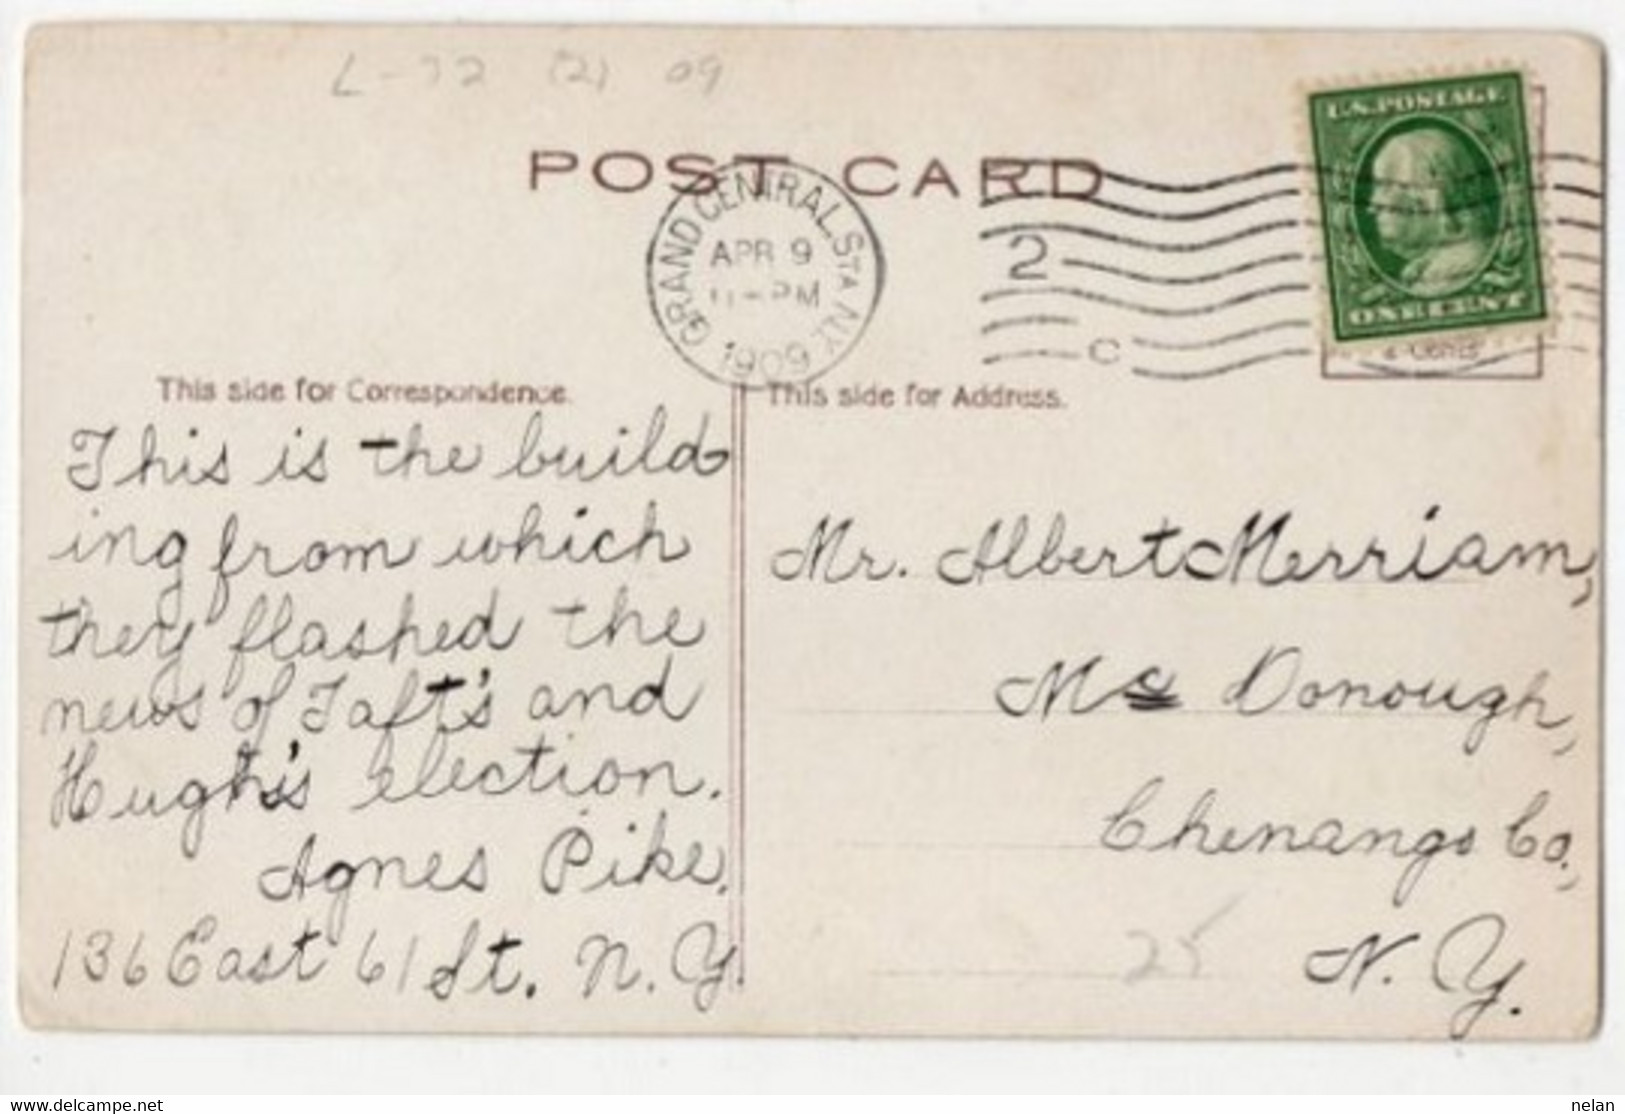 L-72 (2) 09
POST CARD
U.S. POSTAGE
ONE CENT
GRAND CENTRAL STA. N.Y.
APR 9
11-PM
1909
2
C
2 Cents
This side for Correspondence.
This side for Address.
This is the build
ing from which
they flashed the
news of Taft's and
Hugh's election.
Agnes Pike.
136 East 61 St. N. Y.
Mr. Albert Merriam,
Mc Donough,
Chenango Co.,
N. Y.
25
www.delcampe.net
nelan